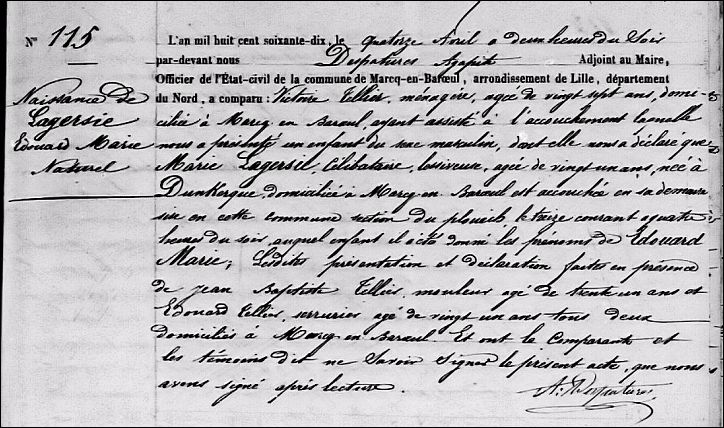 N° 115
Naissance de
Lagersie
Edouard Marie
Naturel
L'an mil huit cent soixante-dix, le quatorze Avril à deux heures du Soir
par-devant nous Despatures Agapit Adjoint au Maire,
Officier de l'État-civil de la commune de Marcq-en-Barœul, arrondissement de Lille, département
du Nord, a comparu: Victoire Tellier, ménagère, agée de vingt sept ans, domi
ciliée à Marcq en Baroeul, ayant assisté à l'accouchement laquelle
nous a présenté un enfant du sexe masculin, dont elle nous a déclaré que
Marie Lagersie, Célibataire, agée de vingt un ans, née à
Dunkerque, domiciliée à Marcq en Baroeul est accouchée en sa demeure
sise en cette commune section du plouich le treize courant à quatre
heures du soir, auquel enfant il a été donné les prénoms de Edouard
Marie; Lesdites présentation et déclaration faites en présence
de Jean Baptiste Tellier, mouleur agé de trente un ans et
Edouard Tellier, serrurier agé de vingt un ans tous deux
domiciliés à Marcq en Baroeul. Et ont la Comparante et
les témoins dit ne Savoir Signer le présent acte, que nous
avons signé après lecture.
A. Despatures